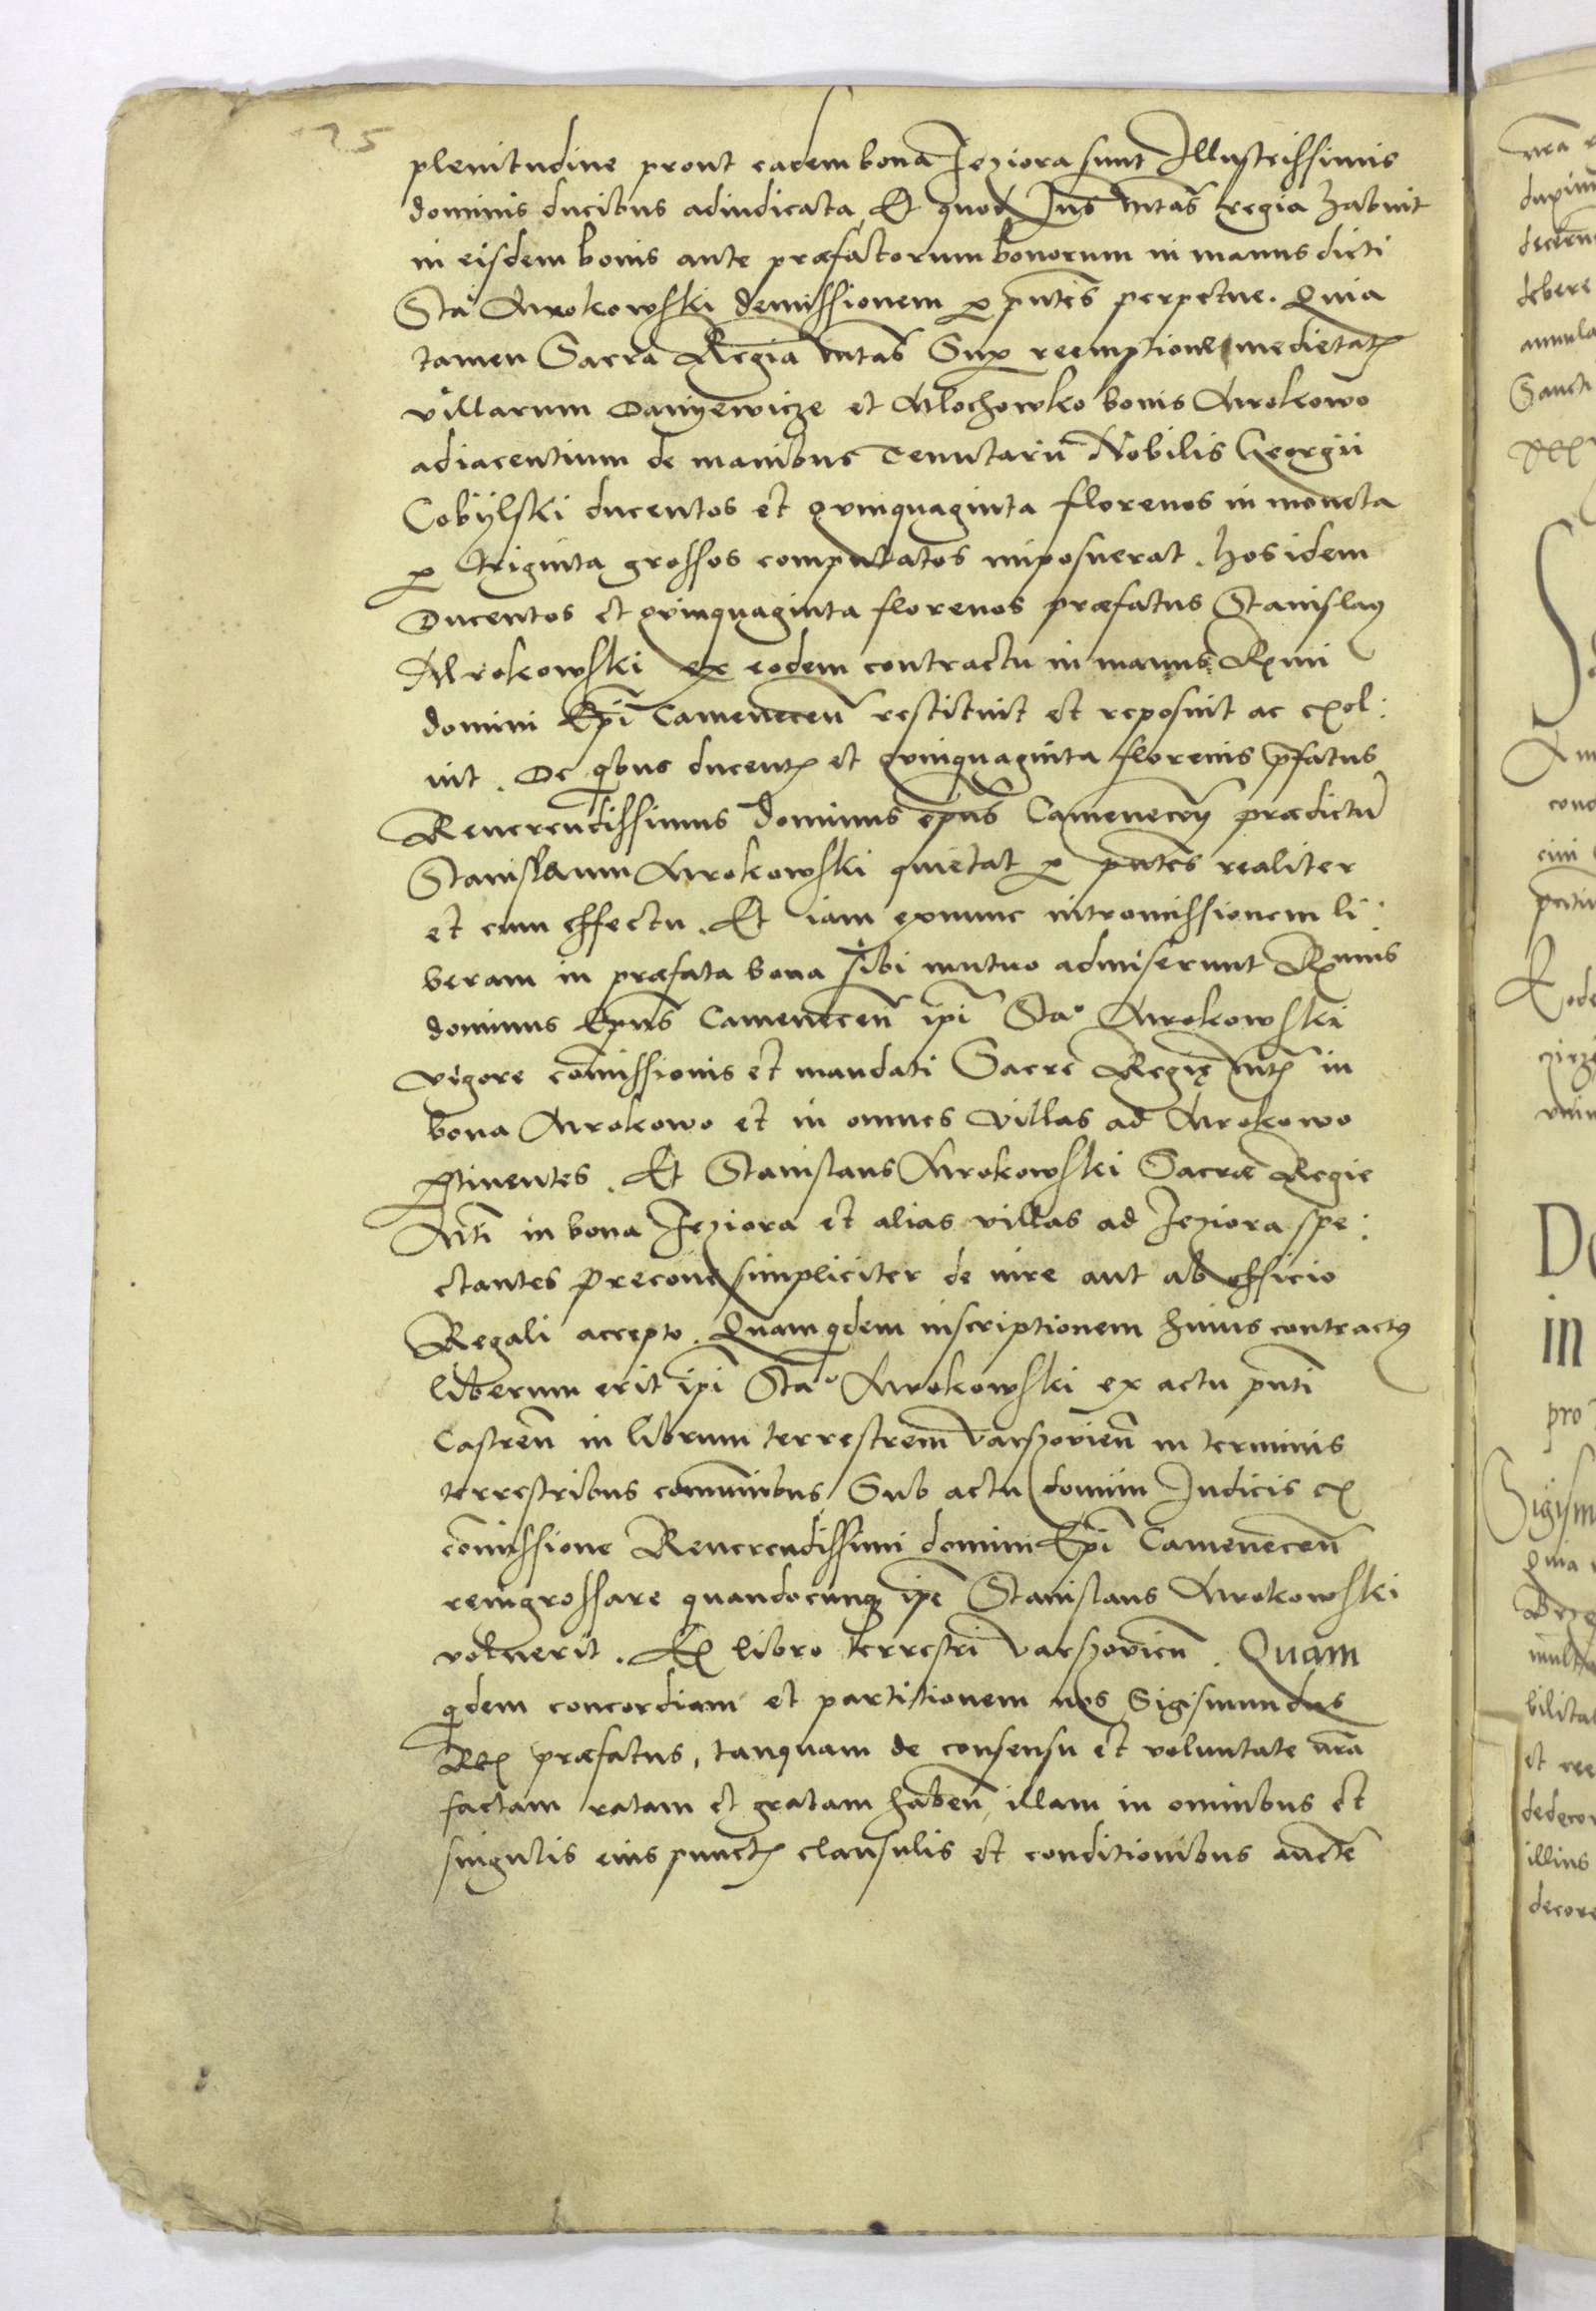 25
plenitudine prout eadem bona Jeziora sunt Illustrissimis
dominis ducibus adiudicata, Et quod Jus mtas regia habuit
in eisdem bonis ante præfatorum bonorum in manus dicti
Sta° Mrokowski demissionem p pntes perpetue. Quia
tamen Sacra Regia mtas Sup reemptione medietatz
villarum Danyewicze et Mlochowko bonis Mrokowo
adiacentium de manibus Tenutarii Nobilis Georgii
Cobÿlski ducentos et quinquaginta florenos in moneta
p triginta grossos computatos imposuerat. hos idem
Ducentos et quinquaginta florenos præfatus Stanislaus
Mrokowski ex eodem contractu in manus Rmi
domini Epi Camenecen restituit et reposuit ac exol:
uit. De qbus ducentz et quinquaginta florenis pfatus
Reuerendissimus dominus epus Camenecen prædictu
Stanislaum Mrokowski quietat p pntes realiter
et cum effectu. Et iam exnunc intromissionem li:
beram in præfata bona sibi mutuo admiserunt Rmus
dominus Epus Camenecen ipi Sta° Mrokowski
vigore comissionis et mandati Sacre Regię mtz in
bona Mrokowo et in omnes villas ad Mrokowo
ptinentes. Et Stanislaus Mrokowski Sacræ Regie
Mti in bona Jeziora et alias villas ad Jeziora spe:
ctantes Precone simpliciter de iure aut ab officio
Regali accepto. Quamqdem inscriptionem huius contractus
liberum erit ipi Sta° Mrokowski ex actu pnti
Castren in librum terrestrem Varschouien in terminis
terrestribus comunibus, Sub actu domini Judicis ex
comissione Reuerendissimi domini Epi Camenecen
reingrossare quandocunq ipe Stanislaus Mrokowski
voluerit. Ex libro terrestri Varschouien. Quam
qdem concordiam et partitionem nos Sigismundus
Rex præfatus, tanquam de consensu et voluntate nra
factam ratam et gratam haben, illam in omnibus et
singulis eius punctz clausulis et conditionibus aucte